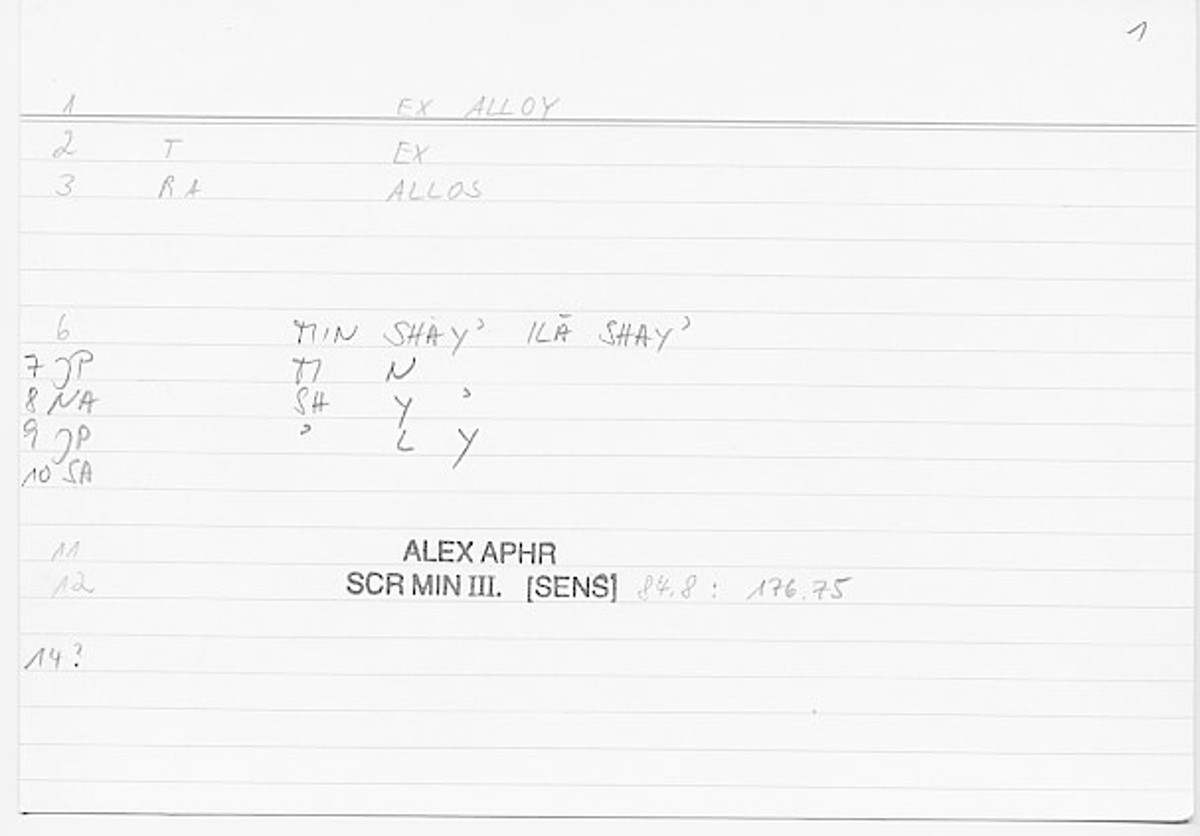 1
1 EX ALLOY
2 T EX
3 RA ALLOS
6 MIN SHAYʾ ILĀ SHAYʾ
7 JP M N
8 NA SH Y ʾ
9 JP ʾ L Y
10 SA
11 ALEX APHR
12 SCR MIN III. [SENS] 84.8 : 176.75
14?